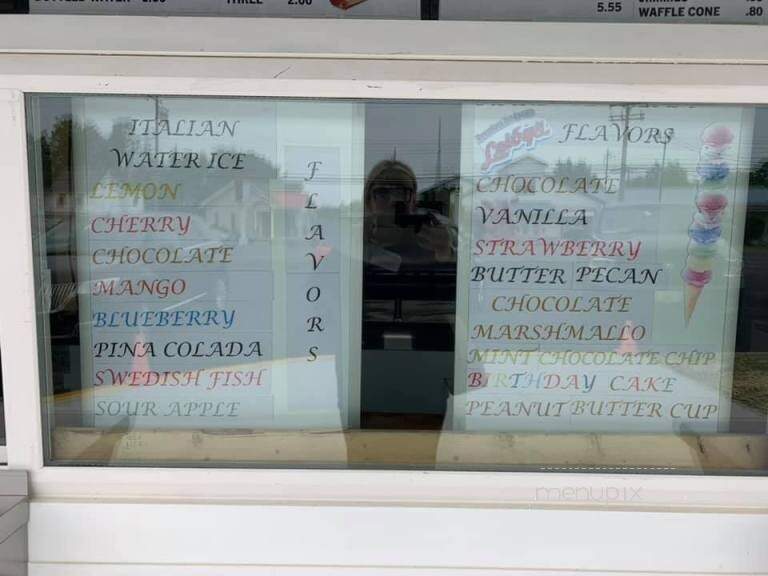 5.55 WAFFLE CONE .80
ITALIAN
WATER ICE
LEMON
CHERRY
CHOCOLATE
MANGO
BLUEBERRY
PINA COLADA
SWEDISH FISH
SOUR APPLE
FLAVORS
FLAVORS
CHOCOLATE
VANILLA
STRAWBERRY
BUTTER PECAN
CHOCOLATE
MARSHMALLO
MINT CHOCOLATE CHIP
BIRTHDAY CAKE
PEANUT BUTTER CUP
menupix